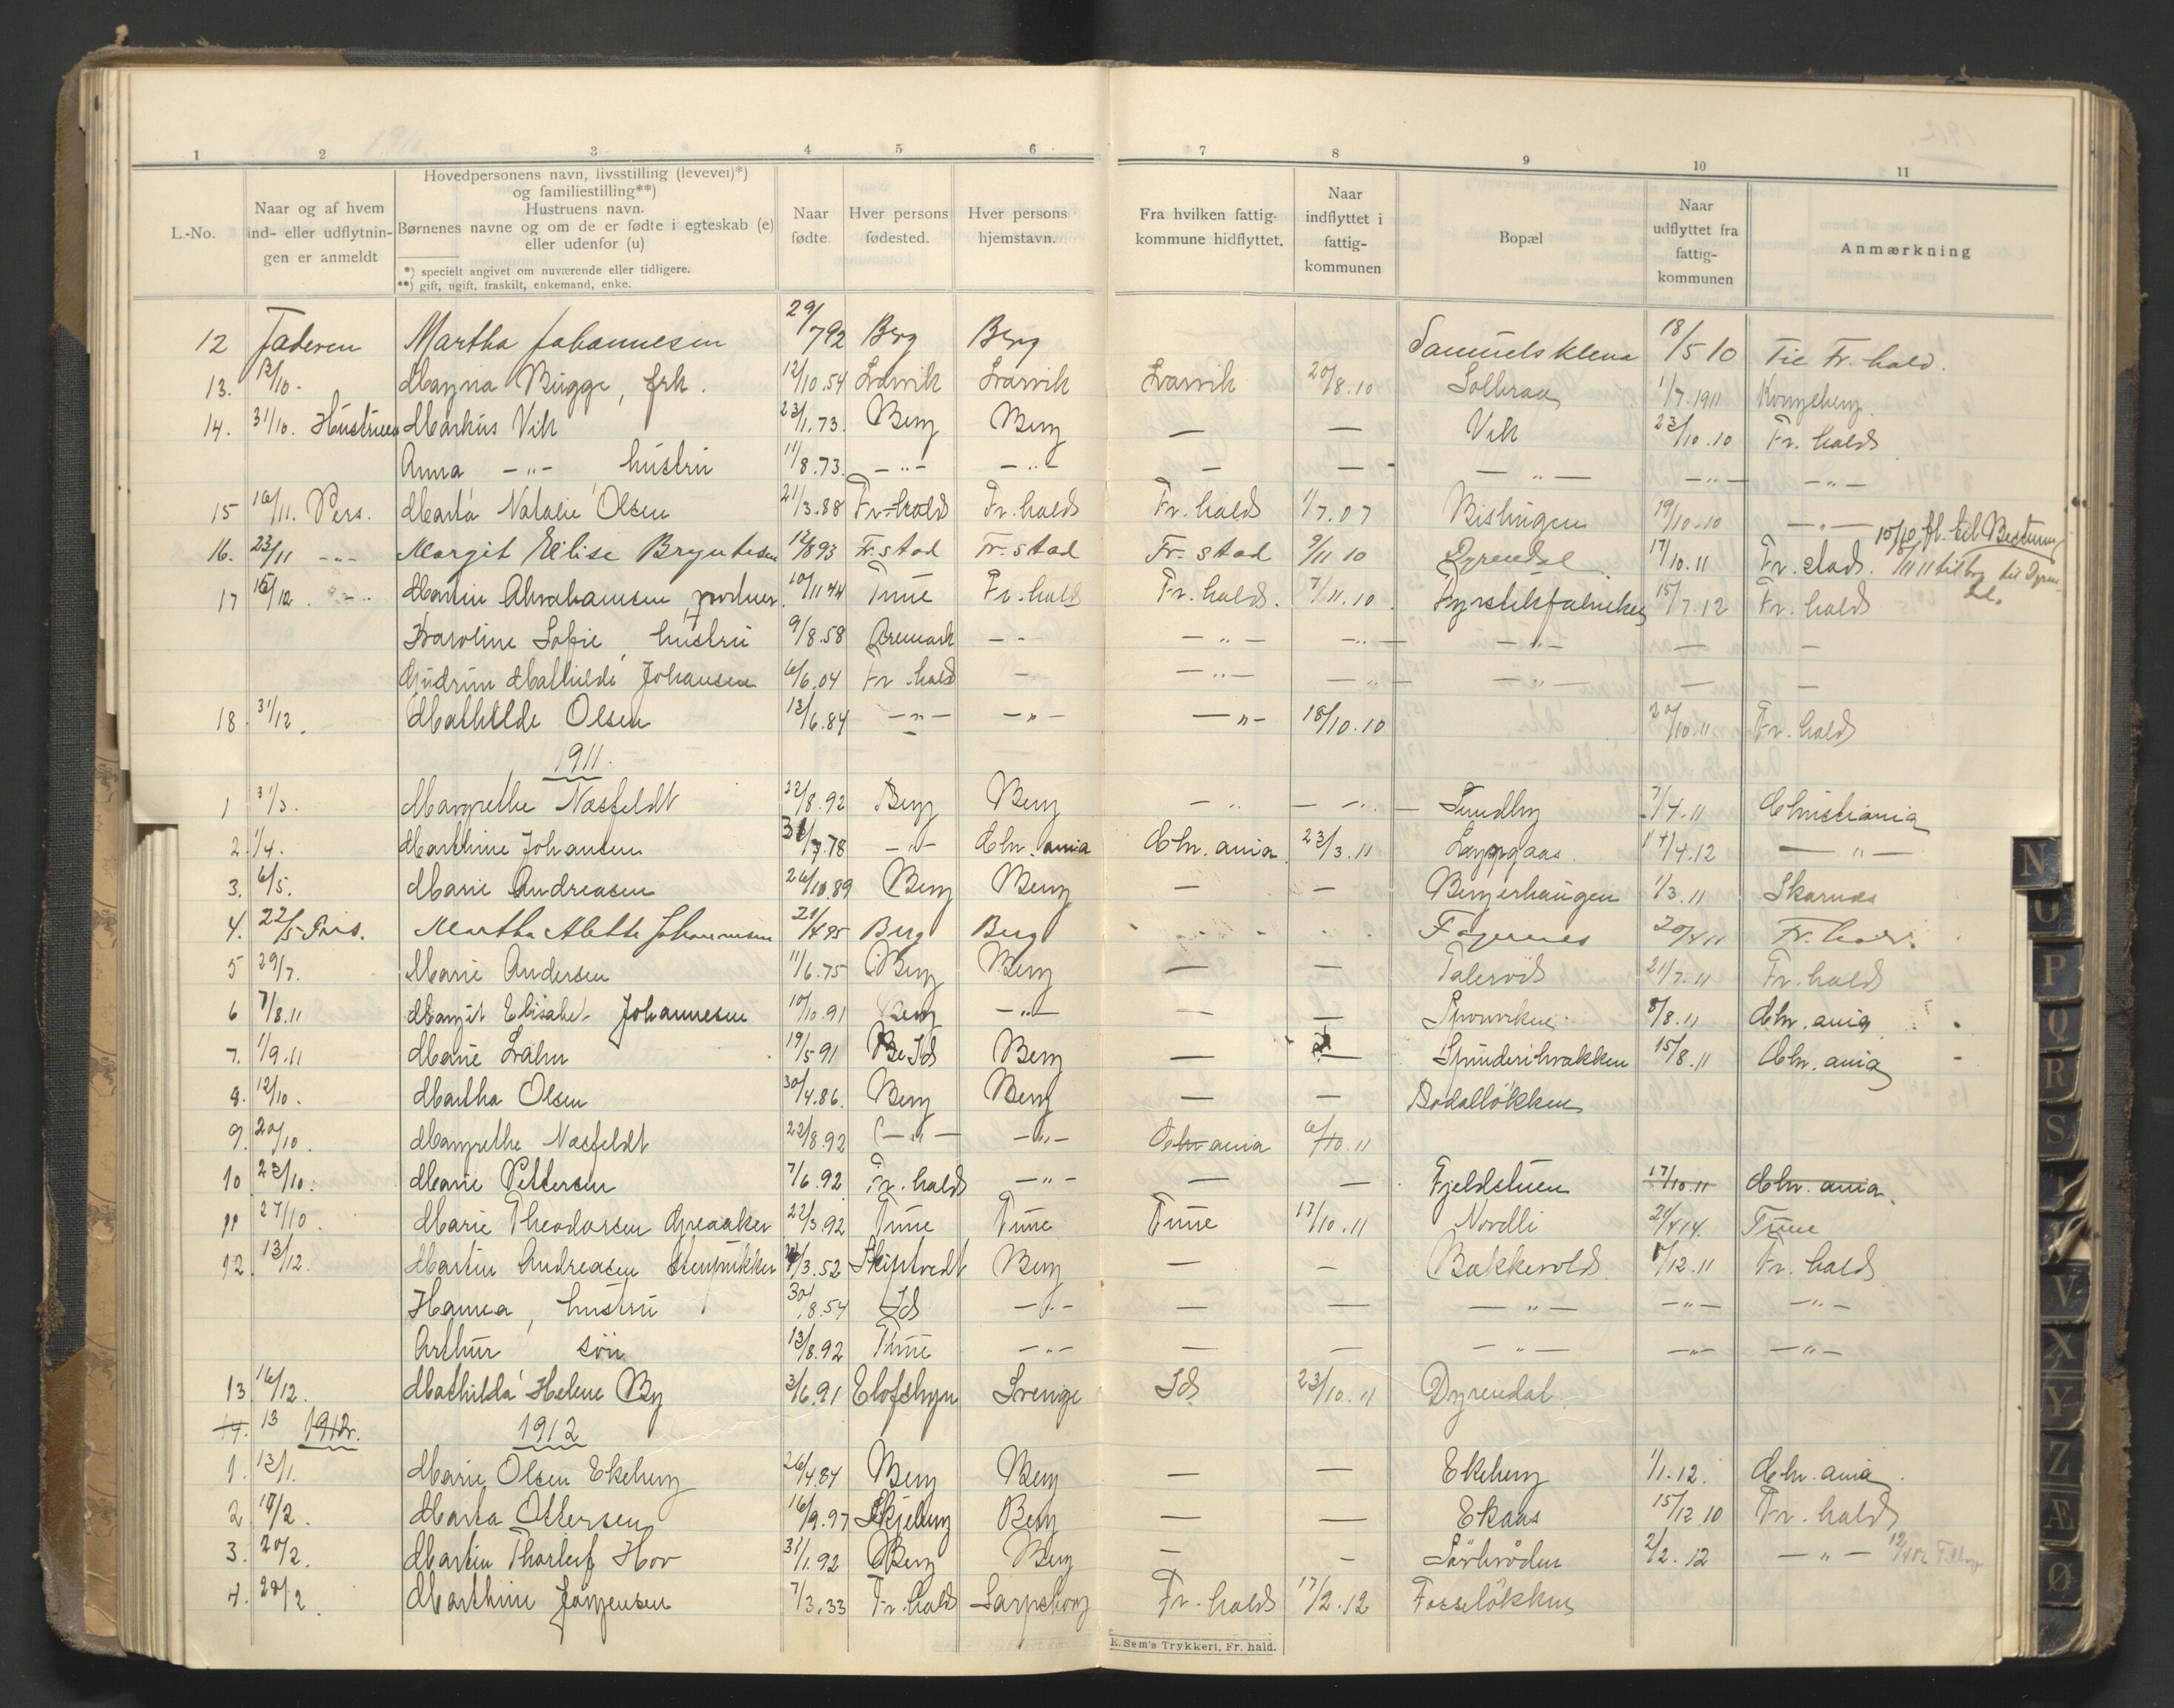 1 2 3 4 5 6 7 8 9 10 11
L.-No.
Naar og af hvem ind- eller udflytnin- gen er anmeldt
Hovedpersonens navn, livsstilling (levevei)*)
og familiestilling**)
Hustruens navn.
Børnenes navne og om de er fødte i egteskab (e)
eller udenfor (u)
*) specielt angivet om nuværende eller tidligere.
**) gift, ugift, fraskilt, enkemand, enke.
Naar fødte.
Hver persons fødested.
Hver persons hjemstavn.
Fra hvilken fattig- kommune hidflyttet.
Naar indflyttet i fattig- kommunen
Bopæl
Naar udflyttet fra fattig- kommunen
Anmærkning
12 Faderen Martha Johannesen 29/7 92 Berg Berg Samuelskleva 18/5 10 Til Fr.hald.
13. 12/10. Magna Bugge, frk. 12/10.54 Larvik Larvik Larvik 20/8.10 Solbraa 1/7.1911 Kongsberg
14. 31/10. Hustruen Markus Vik 23/1.73. Berg Berg — — Vik 23/10.10 Fr.hald
Anna —"— hustru 11/8.73. —"— —"— — — —"— —"— —"—
15 16/11. Pers. Marta Natalie Olsen 21/3.88 Fr.hald Fr.hald Fr.hald 1/7.07 Bislingen 19/10.10 —"—
16. 23/11 —"— Margit Elise Bryntesen 12/8 93 Fr.stad Fr.stad Fr.stad 9/11 10 Dyrendal 17/10.11 Fr.stad. 15/10 fl. til 8/11 11 tilbag til Dyrendal.
17 15/12. —"— Martin Abrahamsen, 10/11 44 Tune Fr.hald Fr.hald. 7/11.10 Fyrstikfabrikken 15/7.12 Fr.hald
Karoline Sofie, hustru 9/8.58 Aremark —"— —"— —"— —"— — —
Gudrun Mathilde Johansen 6/6.04 Fr.hald — —"— —"— —"— — —
18. 31/12. Mathilde Olsen 13/6.84 —"— —"— —"— 18/10.10 20/10.11 Fr.hald
1911.
1 31/3. Margrethe Næsfeldt 22/8.92 Berg Berg —"— —"— Sundby 7/4.11 Christiania
2. 1/4. Marthine Johansen 31/7.78 —"— Chr.ania Chr.ania 23/3.11 14/4.12 —"—
3. 6/5. Marie Andreasen 26/10.89 Berg Berg — — Bergerhaugen 1/3.11 Skarnes
4. 22/5 Martha Alette Johannesen 21/4 95 Berg Berg Fagernes 20/4 11 Fr.hald.
5 29/7. Marie Andersen 11/6.75 Berg Berg — — 21/7.11 Fr.hald
6 7/8.11 Margit Elisabet Johannesen 10/10.91 Berg —"— — — Sponviken 8/8.11 Chr.ania
7. 1/9.11 Marie Lahn 19/5 91 Id Berg — — Spinderibrakken 15/8.11 Chr.ania
8. 12/10. Martha Olsen 30/4.86. Berg Berg — — Bødalløkken
9. 20/10. Margrethe Næsfeldt 22/8.92 —"— —"— Chr.ania 6/10.11
10 23/10. Marie Pettersen 7/6.92 Fr.hald —"— — — Fjeldstuen 17/10.11 Chr.ania.
11 27/10. Marie Theodorsen Greaaker 22/3.92 Tune Tune Tune 17/10.11 Nordli 21/4 14. Tune
12. 13/12. Martin Andreasen Stenpukker /3.52 Skiptvedt Berg — — Bakkevold /12.11 Fr.hald
Hanna, hustru 30/8.54 Id —"— — — —"— —"— —"—
Arthur søn 13/8.92 Tune —"— — — —"— —"— —"—
13 16/12. Mathilda Helene By 3/6.91 Sverige Id 23/10.11 Dyrendal
14. 13 1912. 1912
1. 13/1. Marie Olsen Ekeberg 26/4.84 Berg Berg — — Ekeberg 1/1.12. Chr.ania
2 17/2. Marta Ottersen 16/9.97 Skjeberg Berg — — Ekaas 15/12.10 Fr.hald
3. 20/2. Martin Thorleif Hov 31/1.92 Berg Berg — — Sørbrøden 2/2.12 —"— 12/4 12
4. 29/2. Marthine Jørgensen 7/3.33 Fr.hald Sarpsborg Fr.hald 17/2.12 Fosseløkken
E. Sem's Trykkeri, Fr. hald.
N
O
P
Q
R
S
V
X
Y
Z
Æ
Ø